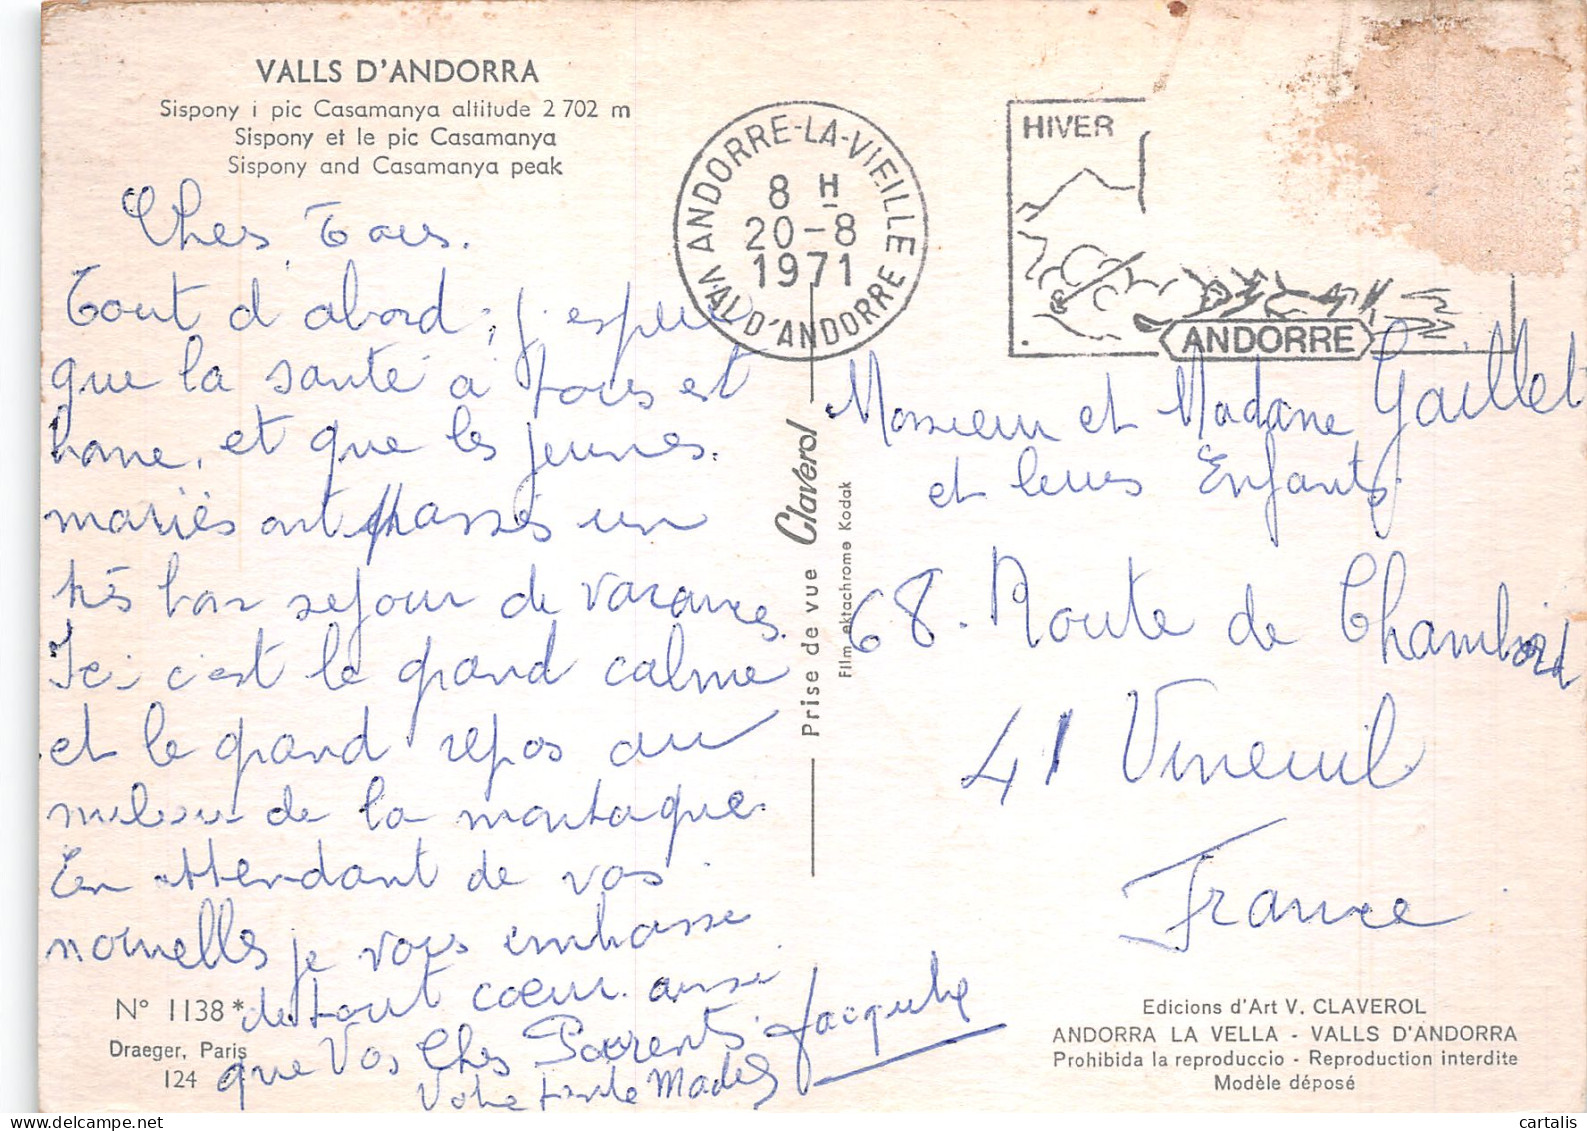 VALLS D'ANDORRA
Sispony i pic Casamanya altitude 2 702 m
Sispony et le pic Casamanya
Sispony and Casamanya peak
ANDORRE-LA-VIEILLE
8 H
20-8
1971
VAL D'ANDORRE
HIVER
ANDORRE
Chers Tous.
Tout d'abord, j'espère
que la santé à tous est
bonne, et que les jeunes.
mariés ont passés un
très bon sejour de vacances.
Ici c'est le grand calme
et le grand repos au
milieu de la montagne.
En attendant de vos
nouvelles je vous embrasse
de tout cœur. ainsi
que Vos Chers Parents. Jacqueline
Votre tante
Monsieur et Madame Gaillet
et leurs Enfants.
68. Route de Chambord
41 Vineuil
France
Prise de vue Claverol
Film ektachrome Kodak
N° 1138*
Draeger, Paris
124
Edicions d'Art V. CLAVEROL
ANDORRA LA VELLA - VALLS D'ANDORRA
Prohibida la reproduccio - Reproduction interdite
Modèle déposé
cartalis